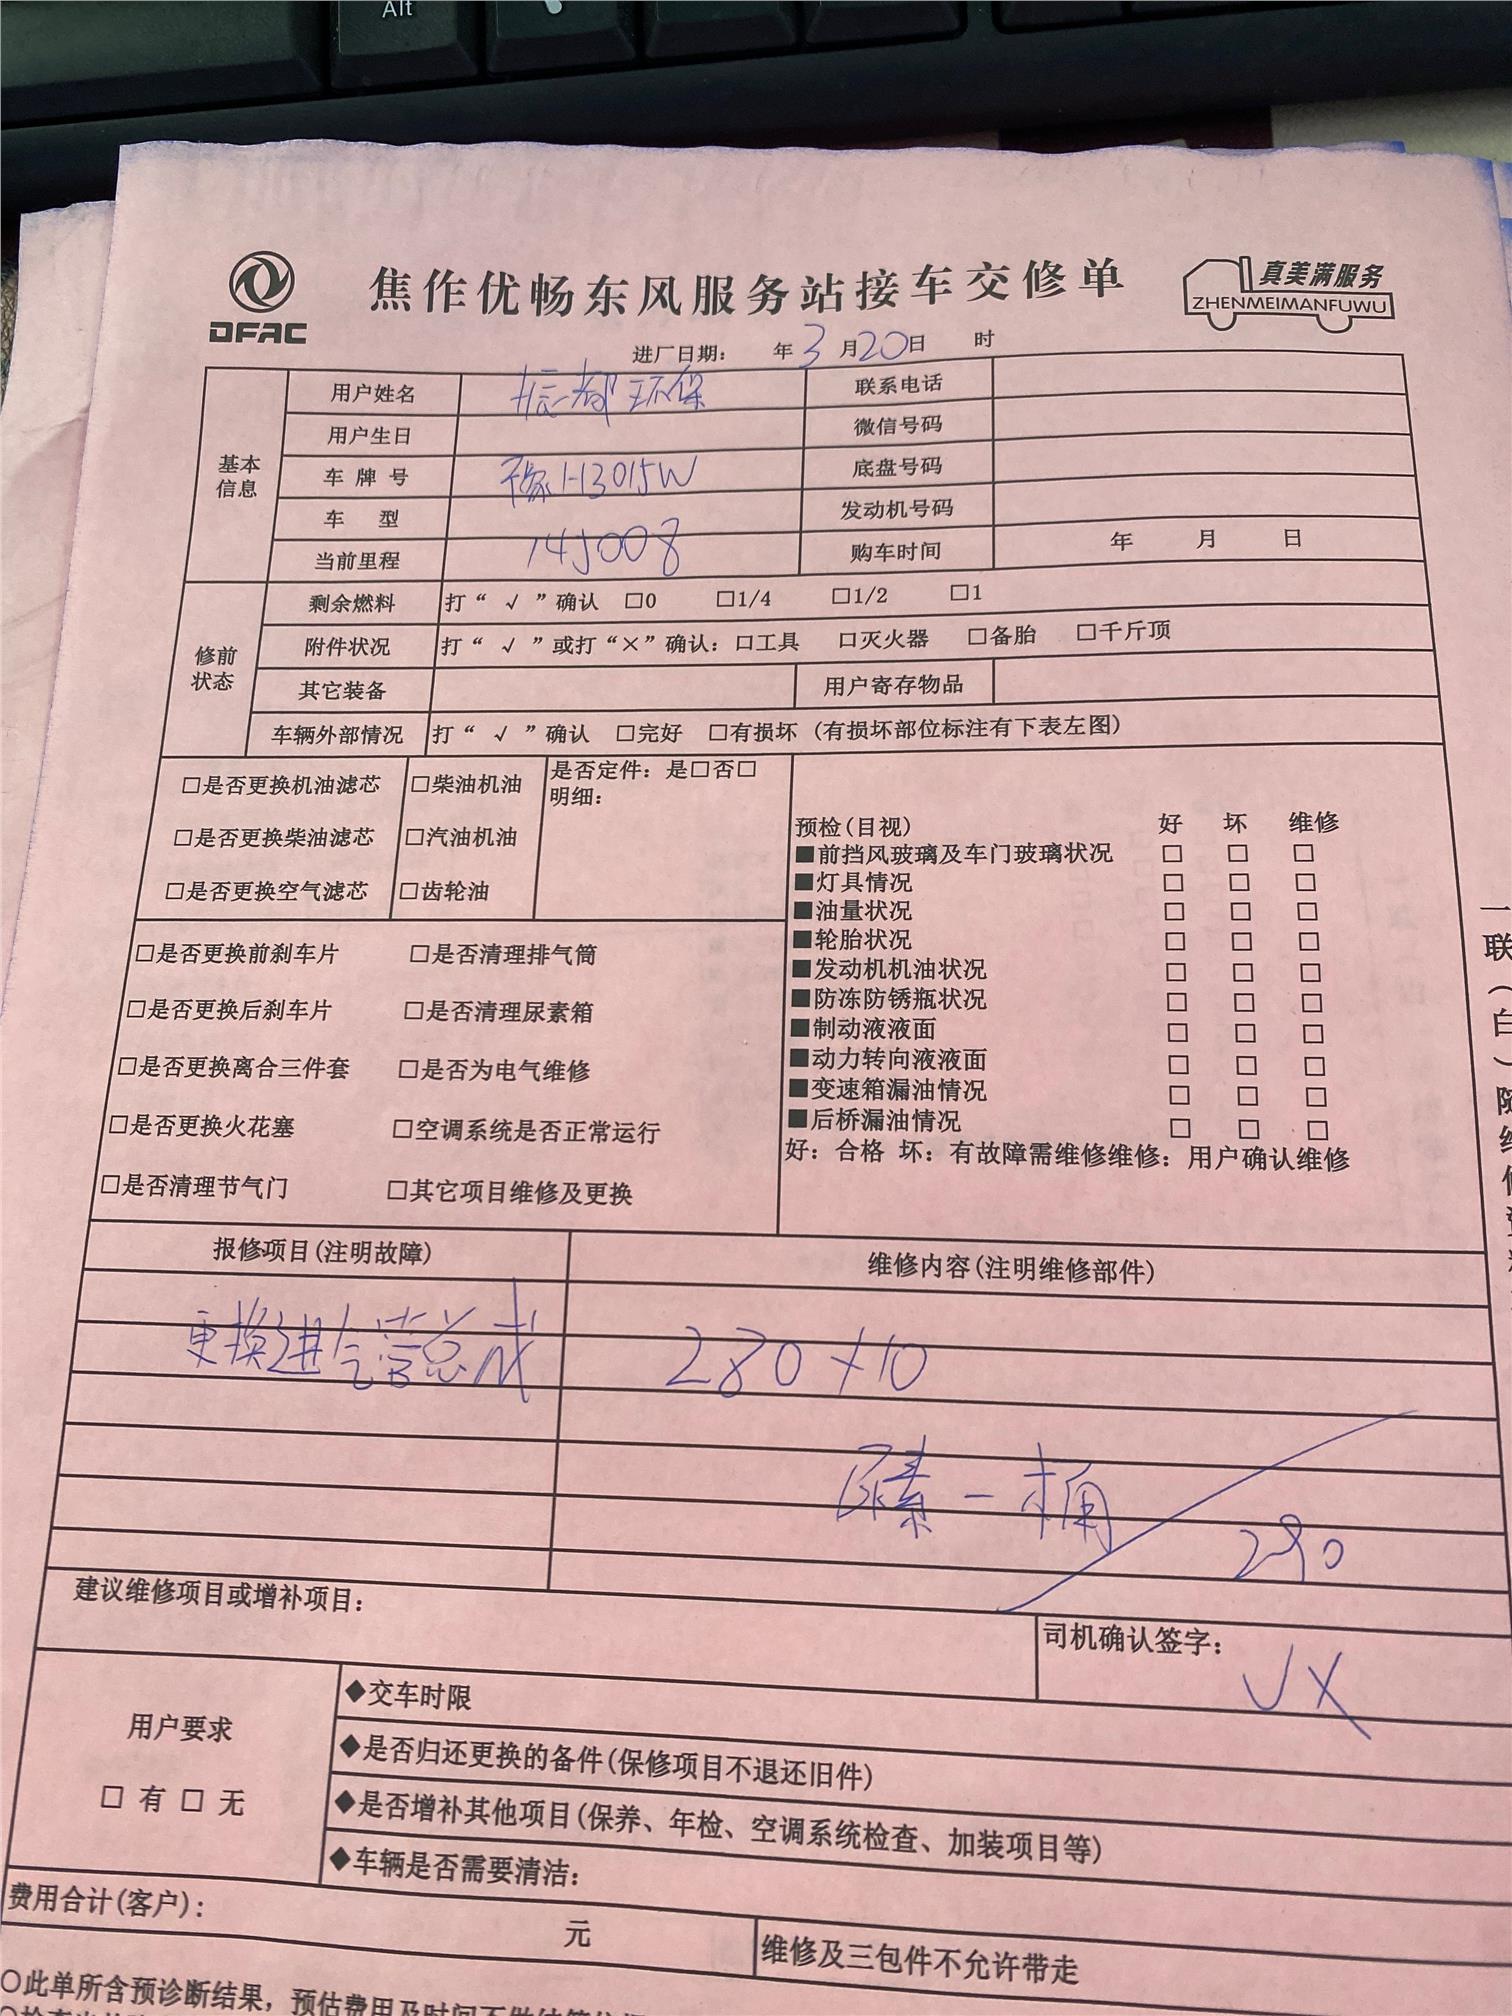 Alt
DFAC
焦作优畅东风服务站接车交修单
真美满服务
ZHENMEIMANFUWU
进厂日期： 年 3 月 20 日 时
基本信息
用户姓名 环保 联系电话
用户生日 微信号码
车牌号 豫H3015W 底盘号码
车 型 发动机号码
当前里程 145008 购车时间 年 月 日
修前状态
剩余燃料 打“ √ ”确认 □0 □1/4 □1/2 □1
附件状况 打“ √ ”或打“×”确认：□工具 □灭火器 □备胎 □千斤顶
其它装备 用户寄存物品
车辆外部情况 打“ √ ”确认 □完好 □有损坏 (有损坏部位标注有下表左图)
□是否更换机油滤芯 □柴油机油
□是否更换柴油滤芯 □汽油机油
□是否更换空气滤芯 □齿轮油
是否定件：是□否□
明细：
□是否更换前刹车片 □是否清理排气筒
□是否更换后刹车片 □是否清理尿素箱
□是否更换离合三件套 □是否为电气维修
□是否更换火花塞 □空调系统是否正常运行
□是否清理节气门 □其它项目维修及更换
预检(目视) 好 坏 维修
■前挡风玻璃及车门玻璃状况 □ □ □
■灯具情况 □ □ □
■油量状况 □ □ □
■轮胎状况 □ □ □
■发动机机油状况 □ □ □
■防冻防锈瓶状况 □ □ □
■制动液液面 □ □ □
■动力转向液液面 □ □ □
■变速箱漏油情况 □ □ □
■后桥漏油情况 □ □ □
好：合格 坏：有故障需维修维修：用户确认维修
一联（白）随
报修项目(注明故障) 维修内容(注明维修部件)
更换进气管总成 280+10
尿素一桶
290
建议维修项目或增补项目：
司机确认签字：
用户要求
□ 有 □ 无
◆交车时限
◆是否归还更换的备件(保修项目不退还旧件)
◆是否增补其他项目(保养、年检、空调系统检查、加装项目等)
◆车辆是否需要清洁：
费用合计(客户)： 元 维修及三包件不允许带走
○此单所含预诊断结果，预估费用及时间不做结算依据